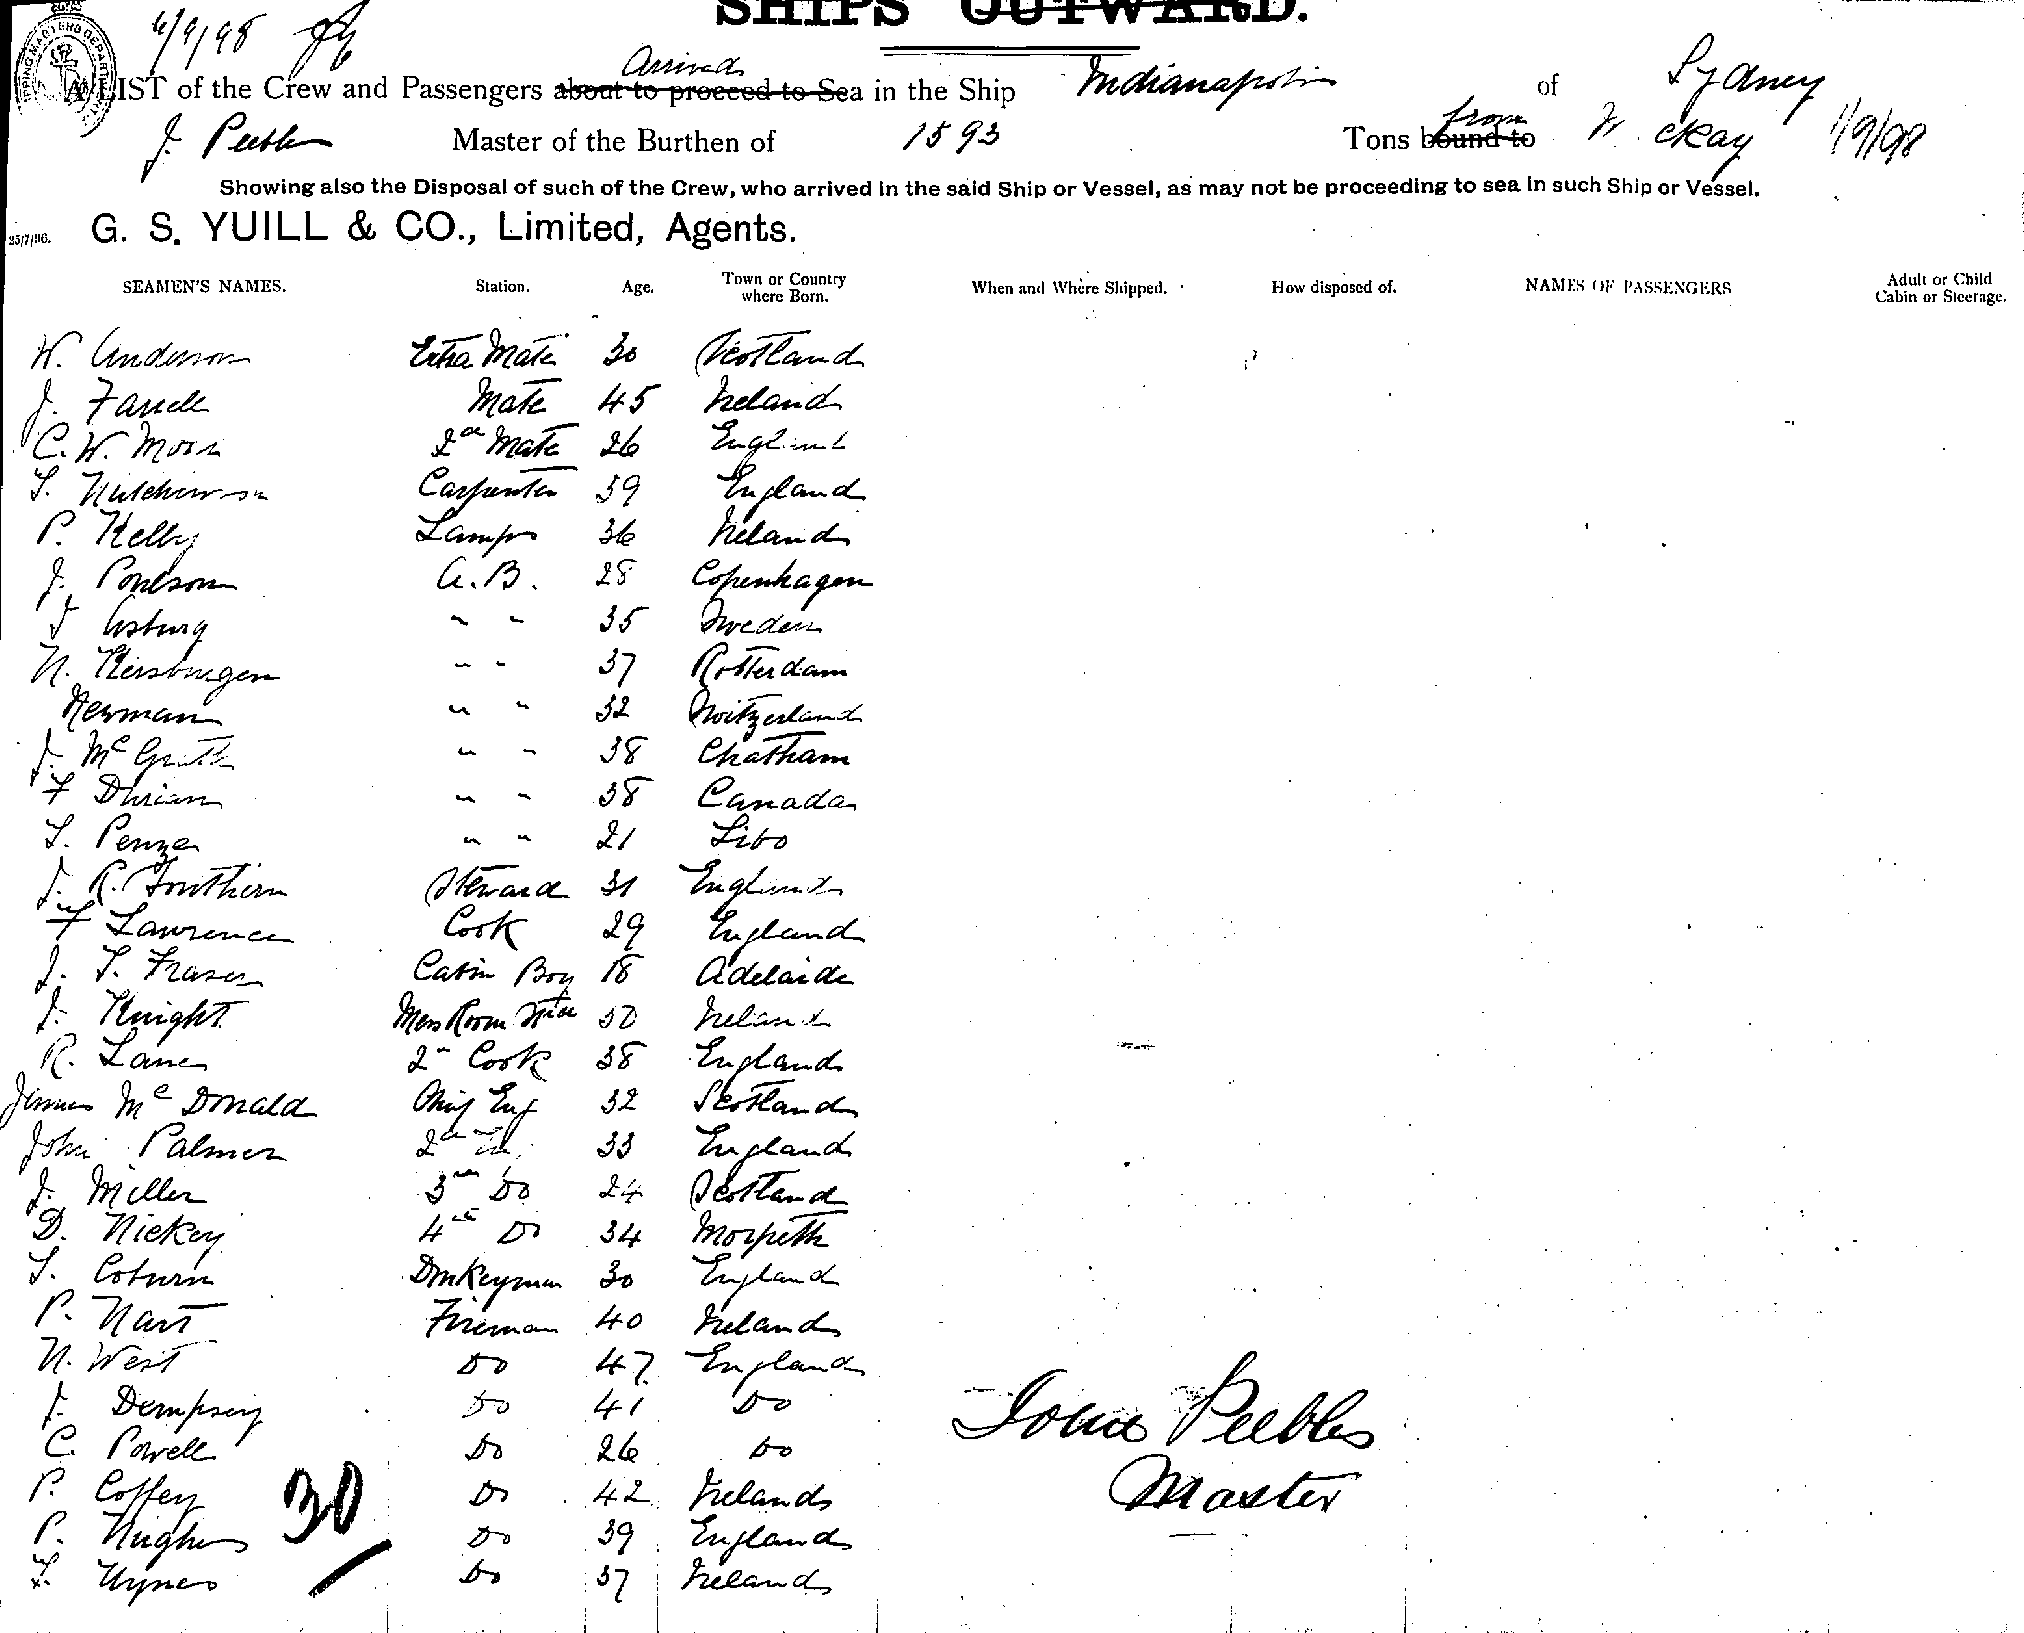 SHIPS OUTWARD.
6/9/98
Arrived
A LIST of the Crew and Passengers about to proceed to Sea in the Ship Indianapolis of Sydney
J. Peebles Master of the Burthen of 1593 Tons bound to from McKay 1/9/98
Showing also the Disposal of such of the Crew, who arrived in the said Ship or Vessel, as may not be proceeding to sea in such Ship or Vessel.
25/7/96. G. S. YUILL & CO., Limited, Agents.
SEAMEN'S NAMES. Station. Age. Town or Country where Born. When and Where Shipped. How disposed of. NAMES OF PASSENGERS Adult or Child Cabin or Steerage.
W. Anderson Extra Mate 30 Scotland
J. Farrell Mate 45 Ireland
C. W. Moon 2nd Mate 26 England
T. Hutchinson Carpenter 39 England
P. Kelly Lamps 36 Ireland
J. Poulson A.B. 28 Copenhagen
Asburg " " 35 Sweden
H. " " 37 Rotterdam
Herman " " 32 Switzerland
J. McGrath " " 38 Chatham
F Dhrian " " 38 Canada
T. Penza " " 21 Libo
J. R. Southern Steward 31 England
F Lawrence Cook 29 England
J. T. Fraser Cabin Boy 18 Adelaide
J. Knight Mess Room Stew 50 Ireland
R. Lane 2nd Cook 38 England
James McDonald Chief Eng 32 Scotland
John Palmer 2nd Do 33 England
J. Miller 3rd Do 24 Scotland
D. Hickey 4th Do 34 Morpeth
T. Coburn Donkeyman 30 England
P. Hart Fireman 40 Ireland
H. West Do 47 England
J. Dempsey Do 41 Do
C. Powell Do 26 Do
P. Coffey Do 42 Ireland
P. Hughes Do 39 England
T. Hynes Do 37 Ireland
30
John Peebles
Master